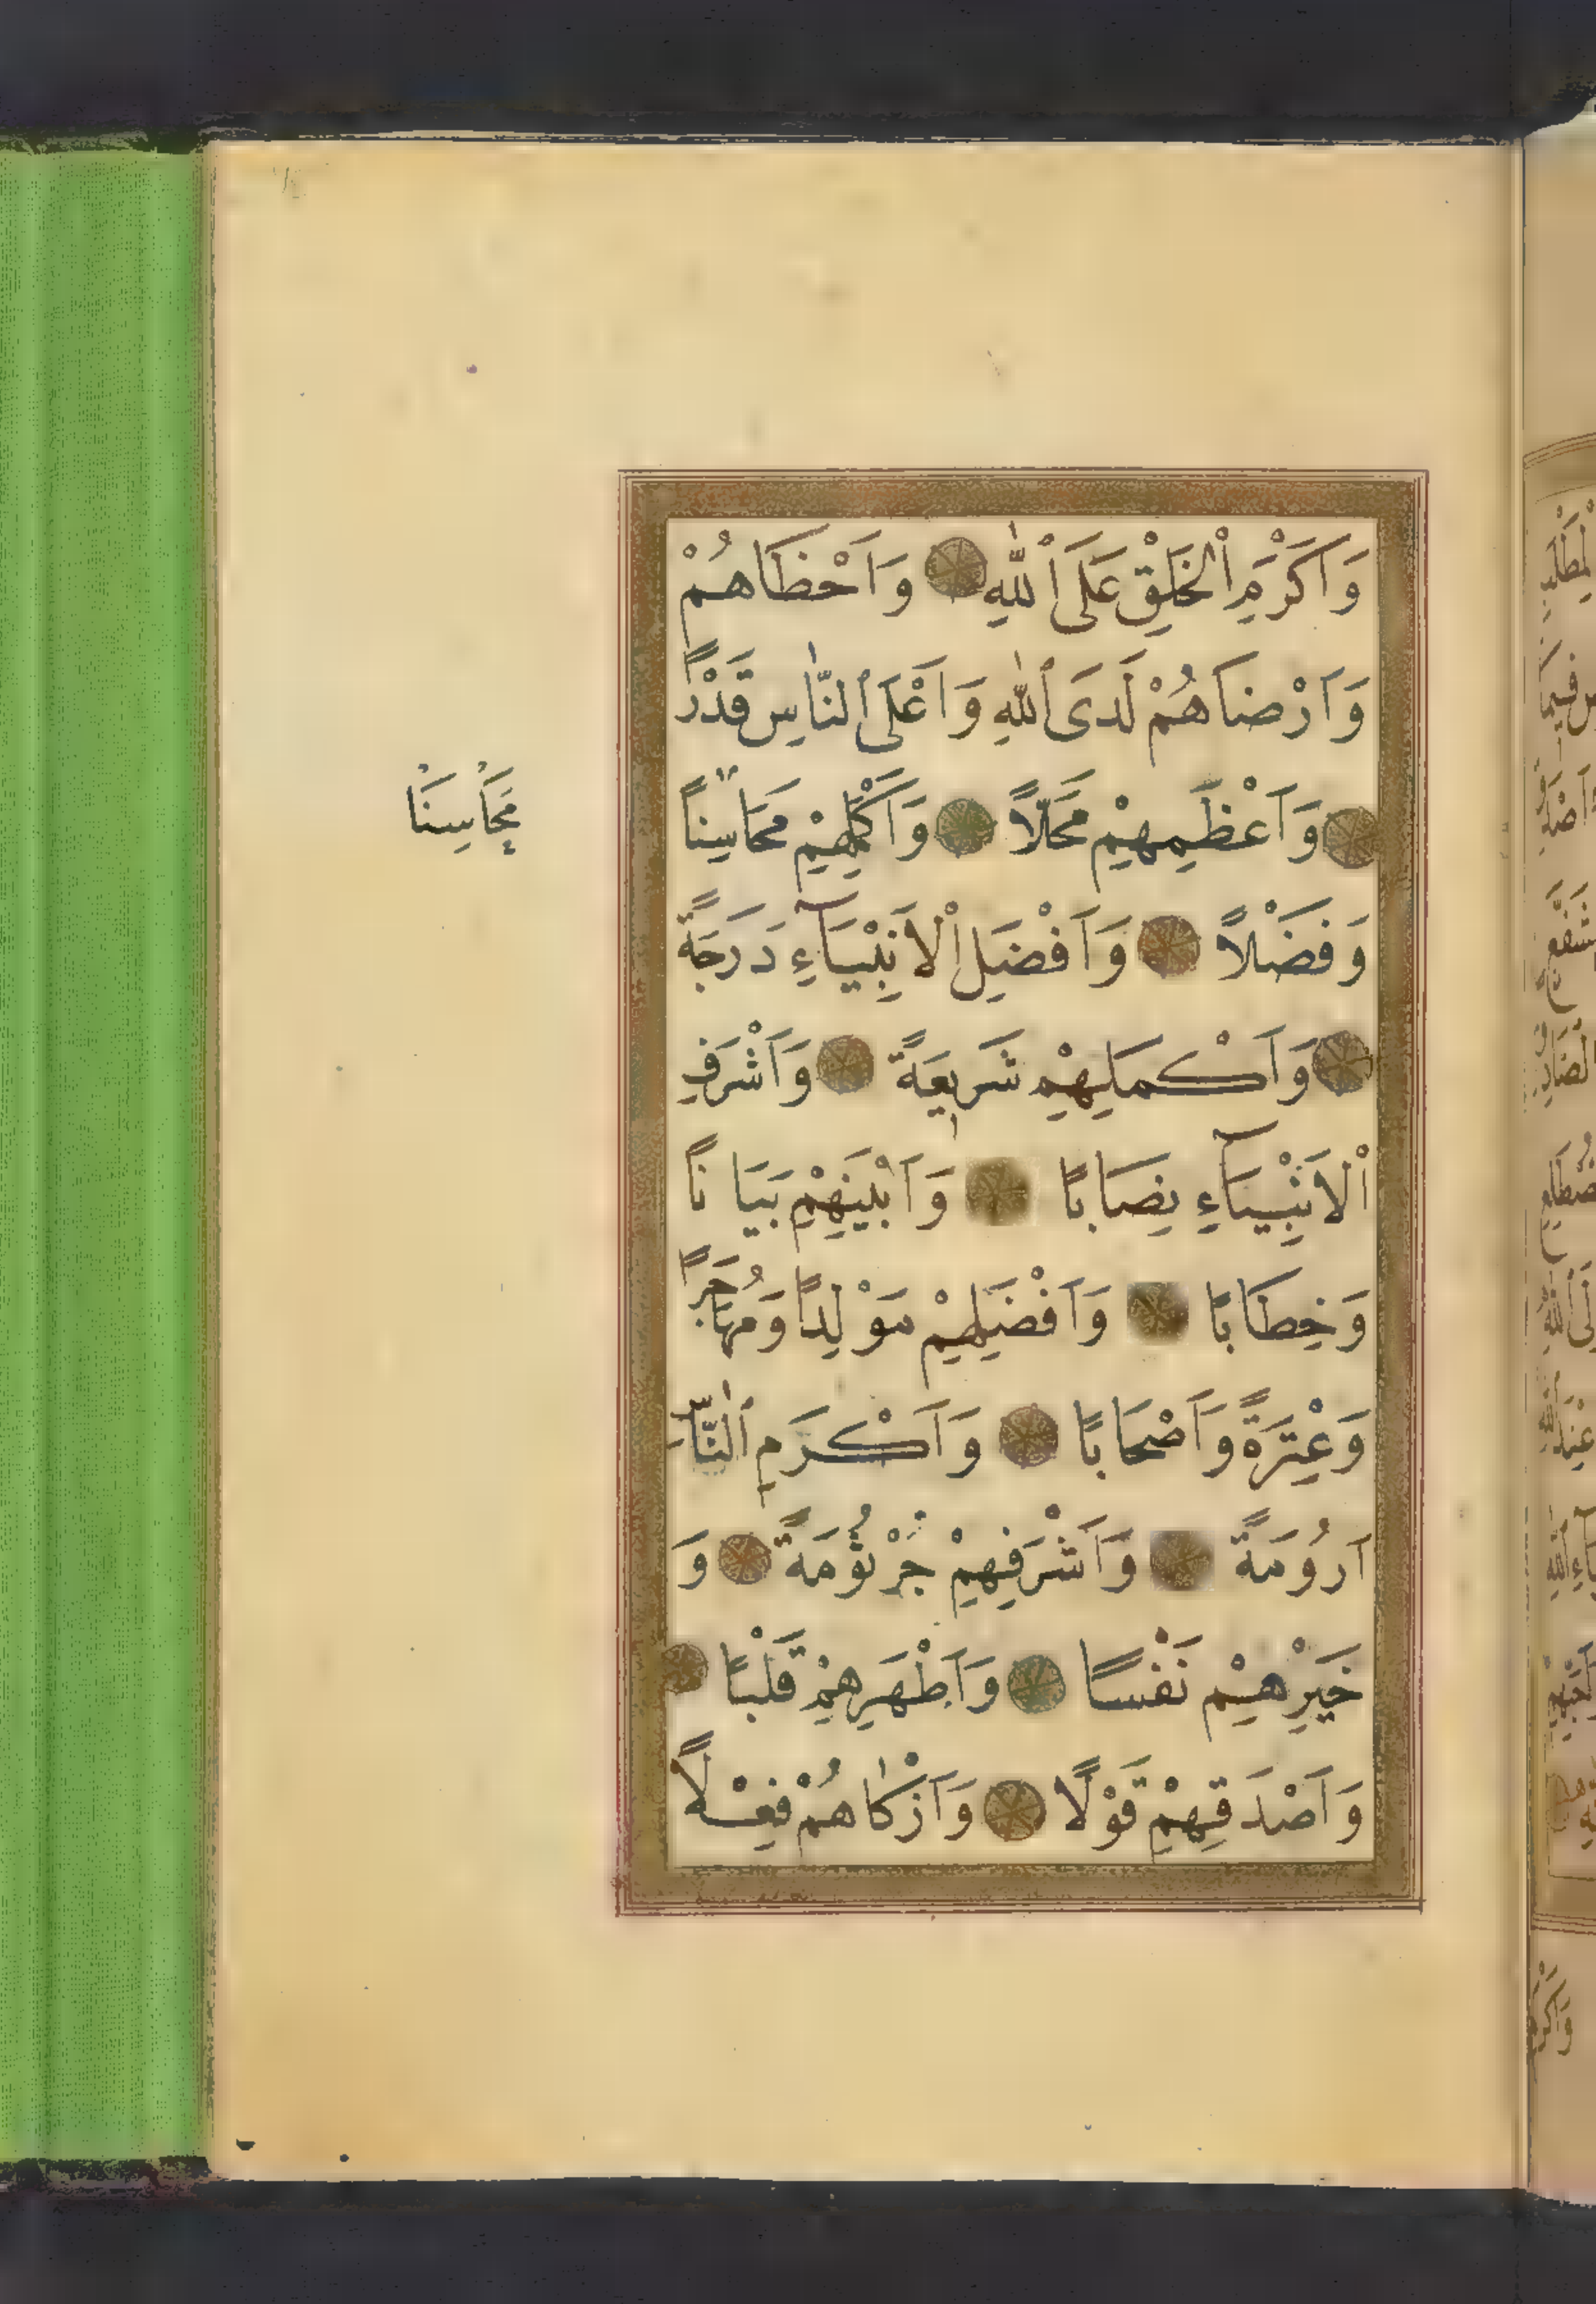 وَاَكْرَمِ اْلخَلْقِ عَلَى ٱللّٰهِ وَاَحْظَاهُمْ
وَاَرْضَاهُمْ لَدَى ٱللّٰهِ وَاَعْلَى ٱلنَّاسِ قَدْرًا
وَاَعْظَمِهِمْ مَحَلًّا وَاَكْمَلِهِمْ مَحَاسِنًا
مَحَاسِنَا
وَفَضْلًا وَاَفْضَلِ اْلاَنْبِيَآءِ دَرَجَةً
وَاَكْمَلِهِمْ شَرِيعَةً وَاَشْرَفِ
اْلاَنْبِيَآءِ نِصَابًا وَاَبْيَنِهِمْ بَيَانًا
وَخِطَابًا وَاَفْضَلِهِمْ مَوْلِدًا وَمُهَاجَرًا
وَعِتْرَةً وَاَصْحَابًا وَاَكْرَمِ ٱلنَّاسِ
اَرُومَةً وَاَشْرَفِهِمْ جُرْثُومَةً وَ
خَيْرِهِمْ نَفْسًا وَاَطْهَرِهِمْ قَلْبًا
وَاَصْدَقِهِمْ قَوْلًا وَاَزْكَاهُمْ فِعْلًا